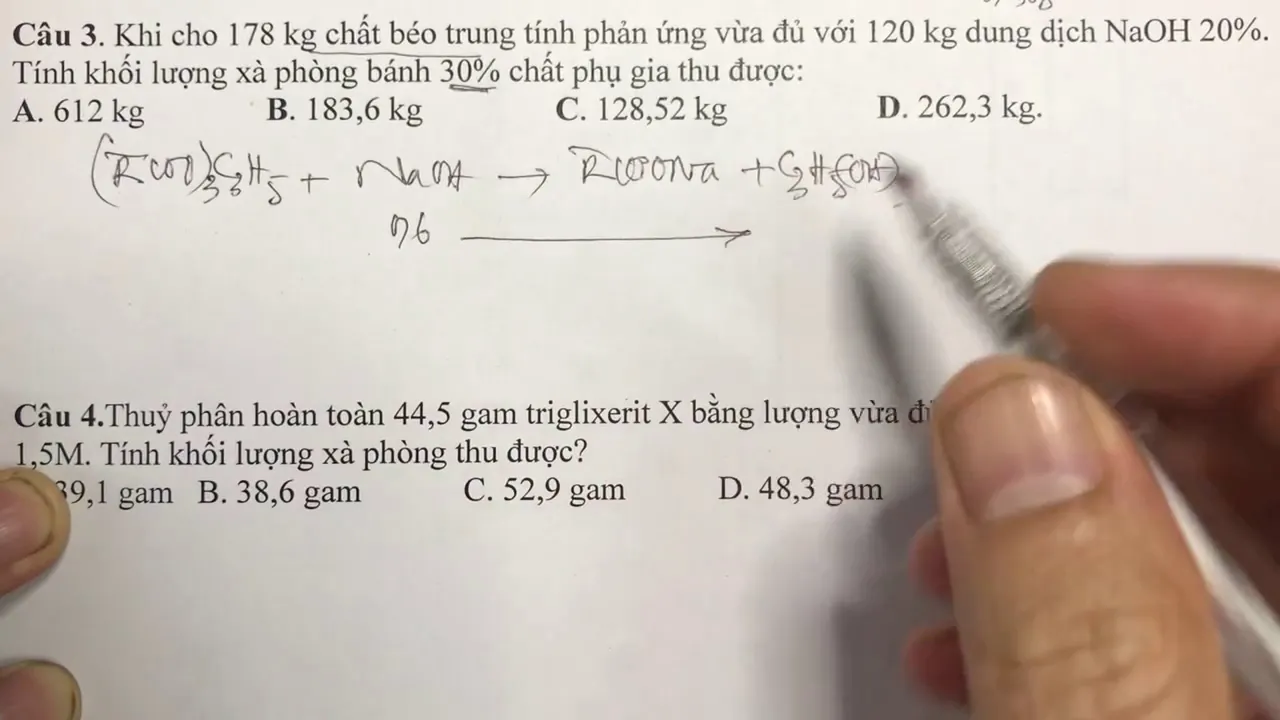 Câu 3. Khi cho 178 kg chất béo trung tính phản ứng vừa đủ với 120 kg dung dịch NaOH 20%.
Tính khối lượng xà phòng bánh 30% chất phụ gia thu được:
A. 612 kg B. 183,6 kg C. 128,52 kg D. 262,3 kg.
(RCOO)₃C₃H₅ + NaOH → RCOONa + C₃H₅(OH)
0,6
Câu 4.Thuỷ phân hoàn toàn 44,5 gam triglixerit X bằng lượng vừa
1,5M. Tính khối lượng xà phòng thu được?
39,1 gam B. 38,6 gam C. 52,9 gam D. 48,3 gam